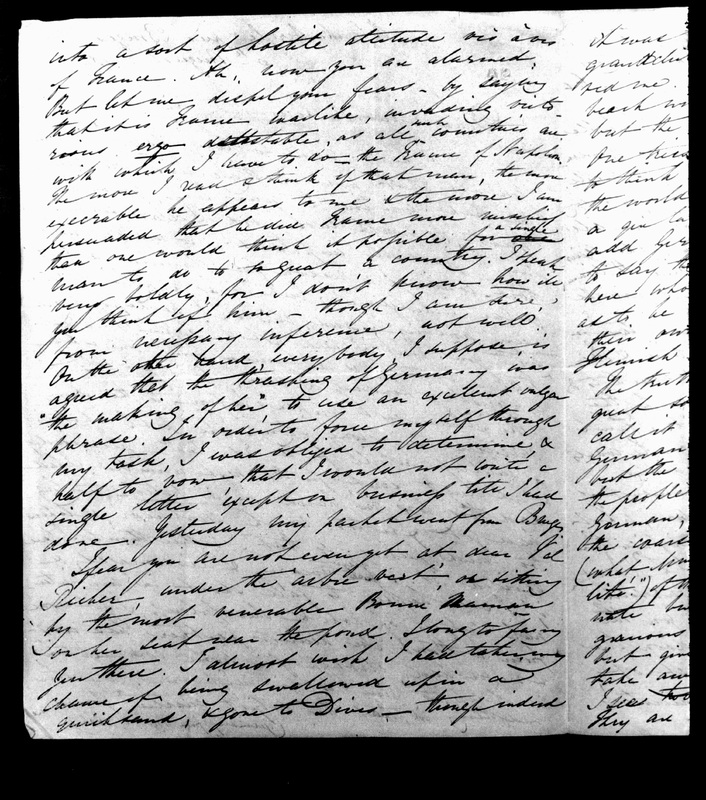 into a sort of hostile attitude vis à vis
of France. Ah, now you are alarmed.
But let me dispel your fears – by saying
that it is France warlike, invading victo-
rious ergo detestable, as all such countries are
with which I have to do – the France of Napoleon.
The more I read & think of that man, the more
execrable he appears to me & the more I am
persuaded that he did France more mischief
than one would think it possible for a single
man to do to so great a country. I speak
very boldly, for I don't know how
you think of him – though I am sure,
from necessary inference, not well.
On the other hand everybody I suppose is
agreed that the thrashing of Germany was
"the making of her", to use an excellent vulgar
phrase. In order to force myself through
my task, I was obliged to determine, &
half to vow that I would not write a
single letter except on business till I had
done. Yesterday my packet went from Bruges
I fear you are not even yet at dear Val
Richer under the 'arbre vert', or sitting
by the most venerable Bonne Maman
on her seat near the pond. I long to fancy
you there. I almost wish I had taken my
chance of being swallowed up in a
quicksand, & gone to Dives – though indeed
it was
red me
beach
but the
One
to think
the world
a gin
add
to say the
here who
as to be
their own
Flemish
The truth
great
call it
German
but the
the people
German,
the coars
(what
like!") of the
note
gracious
but give
take
I see
They are